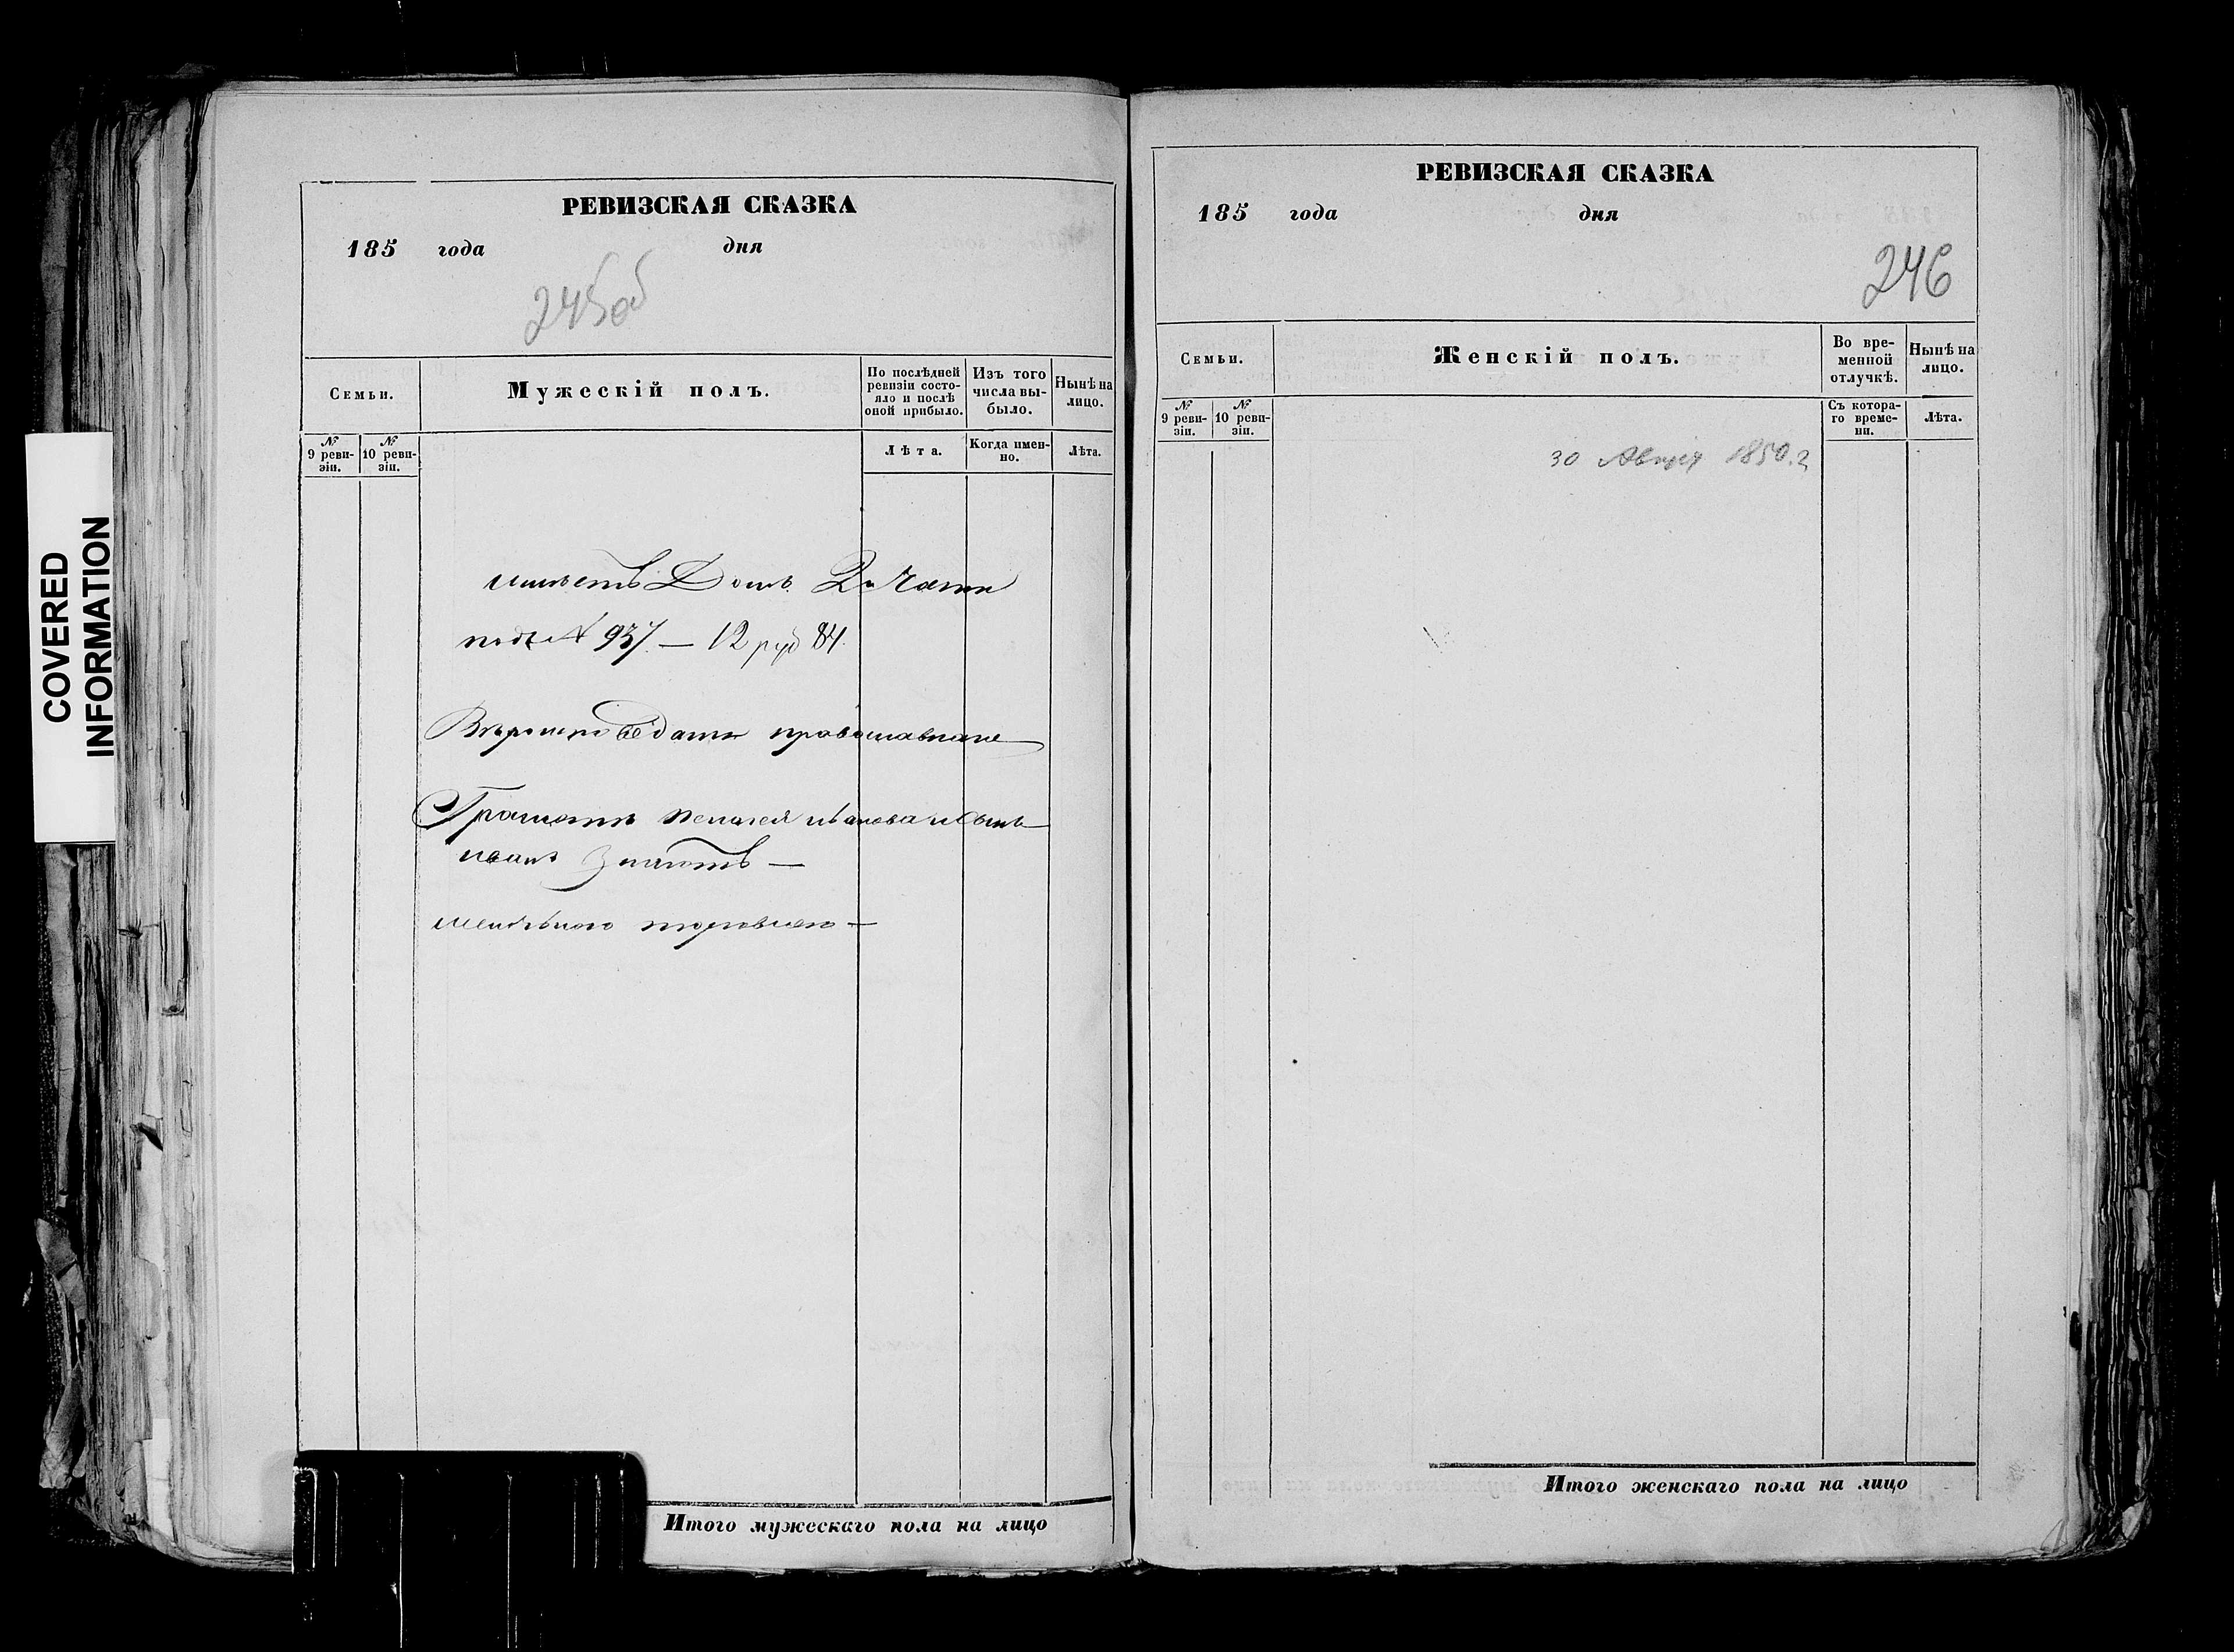 COVERED
INFORMATION
РЕВИЗСКАЯ СКАЗКА
185 года дня
245об
Семьи.
Мужескій полъ.
По послѣдней ревизіи состояло и послѣ оной прибыло.
Изъ того числа выбыло.
Нынѣ на лицо.
№ 9 ревизіи.
№ 10 ревизіи.
Лѣта.
Когда именно.
Лѣта.
имѣетъ Домъ 2й Части
подъ № 937. — 12 руб 84.
Вѣроисповѣданія православнаго
Грамотѣ Иванова и Сынъ
иванъ Знаютъ —
торговлею —
Итого мужескаго пола на лицо
РЕВИЗСКАЯ СКАЗКА
185 года дня
246
Семьи.
Женскій полъ.
Во временной отлучкѣ.
Нынѣ на лицо.
№ 9 ревизіи.
№ 10 ревизіи.
Съ котораго времени.
Лѣта.
30 1850.г
Итого женскаго пола на лицо